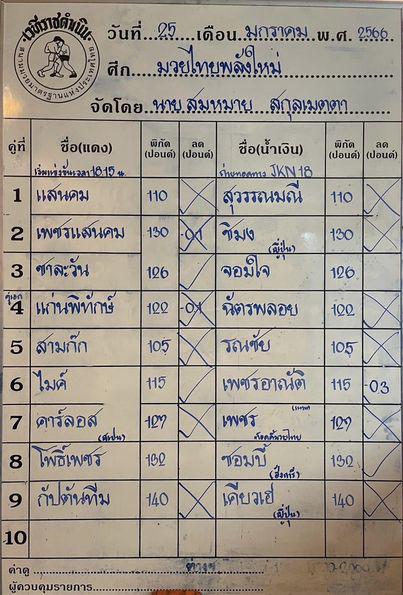 เวทีราชดำเนิน
สนามมวยมาตรฐานแห่งประเทศไทย
วันที่ 25 เดือน มกราคม พ.ศ. 2566
ศึก มวยไทยพลังใหม่
จัดโดย นาย สมหมาย สกุลเมตตา
คู่ที่ ชื่อ(แดง) พิกัด (ปอนด์) ลด (ปอนด์) ชื่อ(น้ำเงิน) พิกัด (ปอนด์) ลด (ปอนด์)
เริ่มแข่งขันเวลา 18.15 น. ถ่ายทอดทาง JKN 18
1 แสนคม 110 สุวรรณมณี 110
2 เพชรแสนคม 130 -0.1 ชิมง (ญี่ปุ่น) 130
3 ชาละวัน 126 จอมใจ 126
คู่เอก
4 แก่นพิทักษ์ 122 -0.1 ฉัตรพลอย 122
5 สามก๊ก 105 รณชัย 105
6 ไมค์ 115 เพชรอาณัติ 115 -0.3
7 คาร์ลอส (สเปน) 127 เพชร 127
8 โพธิ์เพชร 132 ซอมบี้ (ฮังการี) 132
9 กัปตันทีม 140 เคียวเฮ (ญี่ปุ่น) 140
10
ค่าดู
ผู้ควบคุมรายการ